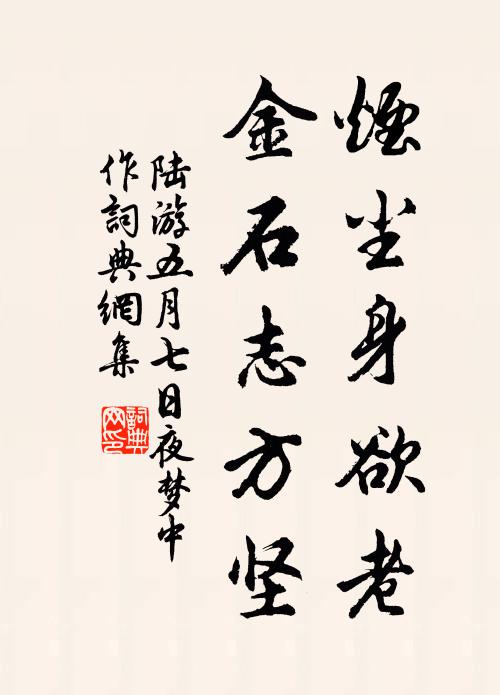 煙尘身欲老
金石志方坚
陆游五月七日夜梦中
作詞典網集
詞典
网印